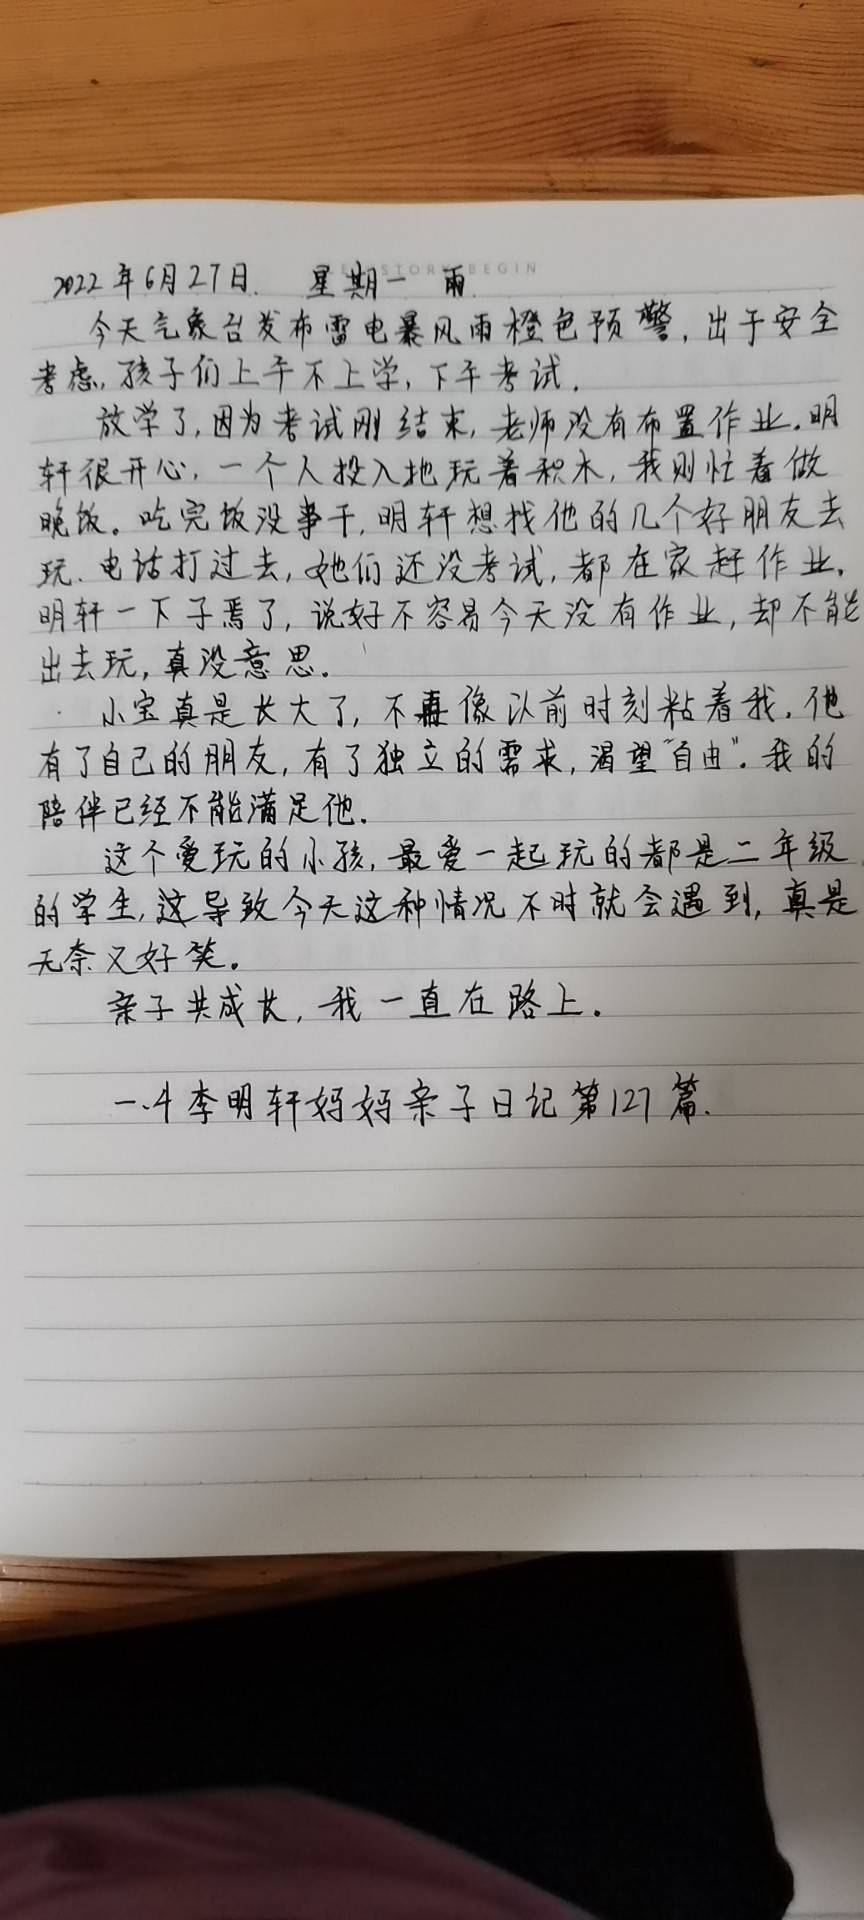 STORY BEGIN
2022年6月27日. 星期一 雨.
今天气象台发布雷电暴风雨橙色预警,出于安全
考虑,孩子们上午不上学,下午考试.
放学了,因为考试刚结束,老师没有布置作业.明
轩很开心,一个人投入地玩着积木,我则忙着做
晚饭。吃完饭没事干,明轩想找他的几个好朋友去
玩、电话打过去,她们还没考试,都在家赶作业.
明轩一下子焉了,说好不容易今天没有作业,却不能
出去玩,真没意思.
小宝真是长大了,不再像以前时刻粘着我.他
有了自己的朋友,有了独立的需求,渴望"自由".我的
陪伴已经不能满足他.
这个爱玩的小孩,最爱一起玩的都是二年级
的学生,这导致今天这种情况不时就会遇到,真是
无奈又好笑。
亲子共成长,我一直在路上.
一.4李明轩妈妈亲子日记第127篇.